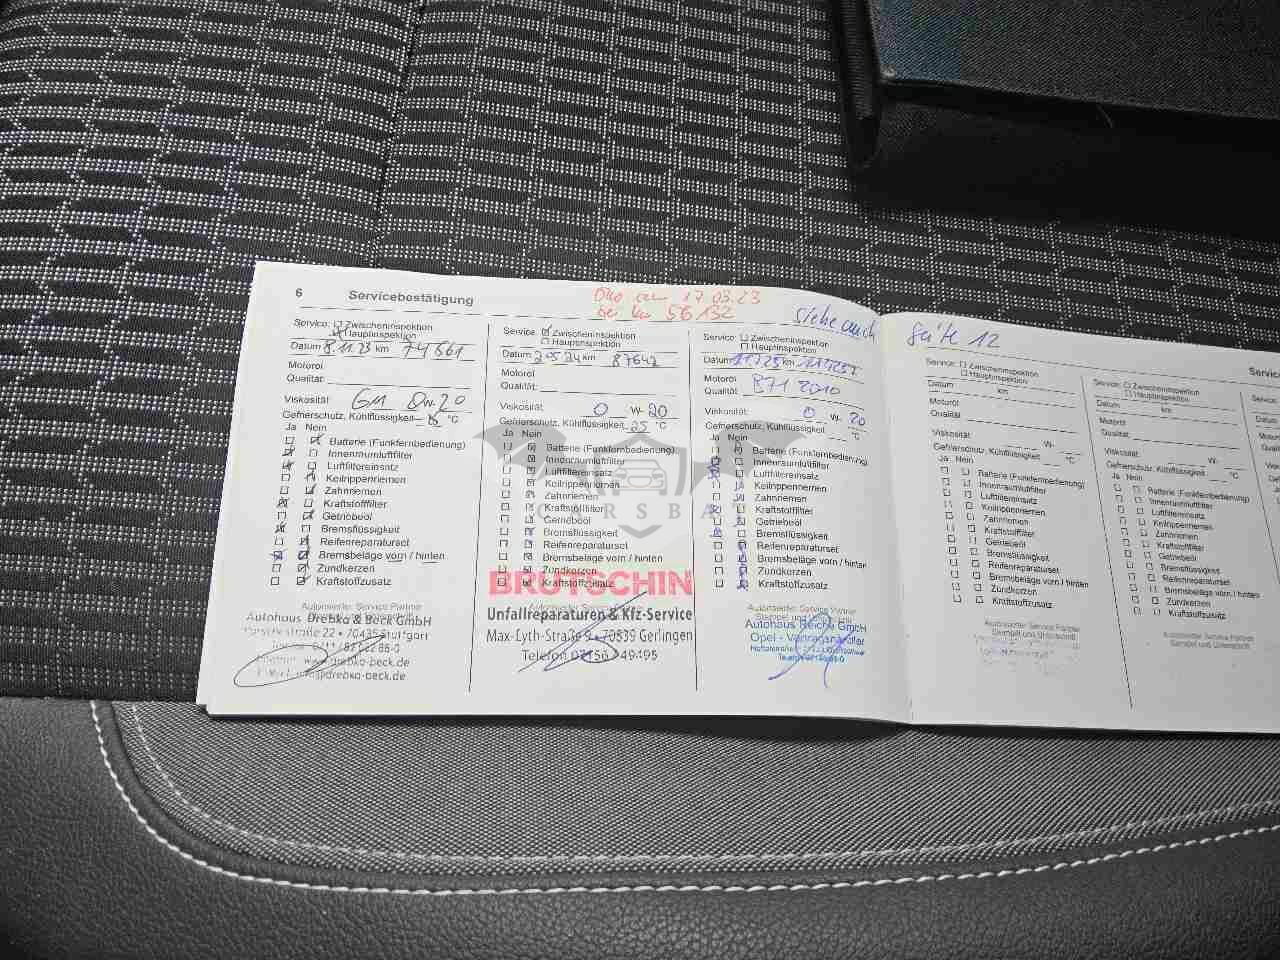 6 Servicebestätigung
17.03.23
bei km 56132
siehe auch Seite 12
Service: Zwischeninspektion
Hauptinspektion
Datum 8.11.23 km 74661
Motoröl
Qualität:
Viskosität: GM 0W-20
Gefrierschutz, Kühlflüssigkeit °C
Ja Nein
Batterie (Funkfernbedienung)
Innenraumluftfilter
Luftfiltereinsatz
Keilrippenriemen
Zahnriemen
Kraftstofffilter
Getriebeöl
Bremsflüssigkeit
Reifenreparaturset
Bremsbeläge vorn / hinten
Zündkerzen
Kraftstoffzusatz
Autorisierter Service Partner
Autohaus Drebka & Beck GmbH
22 • 70435 Stuttgart
www.drebka-beck.de
info@drebka-beck.de
Service: Zwischeninspektion
Hauptinspektion
Datum km 87642
Motoröl
Qualität:
Viskosität: 0 W- 20
Gefrierschutz, Kühlflüssigkeit 25 °C
Ja Nein
Batterie (Funkfernbedienung)
Innenraumluftfilter
Luftfiltereinsatz
Keilrippenriemen
Zahnriemen
Kraftstofffilter
Getriebeöl
Bremsflüssigkeit
Reifenreparaturset
Bremsbeläge vorn / hinten
Zündkerzen
Kraftstoffzusatz
BRUTSCHIN
Unfallreparaturen & Kfz-Service
Max-Eyth-Straße 9 • 70839 Gerlingen
Telefon 07156 / 49495
Service: Zwischeninspektion
Hauptinspektion
Datum km
Motoröl
Qualität: B71 2010
Viskosität: 0 W- 20
Gefrierschutz, Kühlflüssigkeit °C
Ja Nein
Batterie (Funkfernbedienung)
Innenraumluftfilter
Luftfiltereinsatz
Keilrippenriemen
Zahnriemen
Kraftstofffilter
Getriebeöl
Bremsflüssigkeit
Reifenreparaturset
Bremsbeläge vorn / hinten
Zündkerzen
Kraftstoffzusatz
Autorisierter Service Partner
Stempel und Unterschrift
Autohaus Reiche GmbH
Opel - Vertragshändler
Service: Zwischeninspektion
Hauptinspektion
Datum km
Motoröl
Qualität
Viskosität: W-
Gefrierschutz, Kühlflüssigkeit °C
Ja Nein
Batterie (Funkfernbedienung)
Innenraumluftfilter
Luftfiltereinsatz
Keilrippenriemen
Zahnriemen
Kraftstofffilter
Getriebeöl
Bremsflüssigkeit
Reifenreparaturset
Bremsbeläge vorn / hinten
Zündkerzen
Kraftstoffzusatz
Autorisierter Service Partner
Stempel und Unterschrift
Service: Zwischeninspektion
Hauptinspektion
Datum km
Motoröl
Qualität:
Viskosität: W-
Gefrierschutz, Kühlflüssigkeit °C
Ja Nein
Batterie (Funkfernbedienung)
Innenraumluftfilter
Luftfiltereinsatz
Keilrippenriemen
Zahnriemen
Kraftstofffilter
Getriebeöl
Bremsflüssigkeit
Reifenreparaturset
Bremsbeläge vorn / hinten
Zündkerzen
Kraftstoffzusatz
Autorisierter Service Partner
Stempel und Unterschrift
Service
Datum
Motoröl
Qualität:
CARSBA